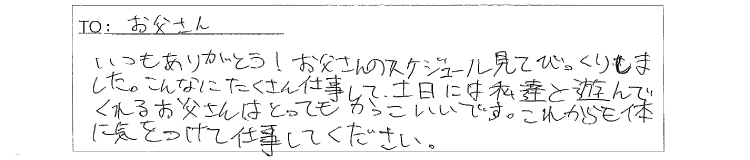 TO: お父さん
いつもありがとう！お父さんのスケジュール見てびっくりしま
した。こんなにたくさん仕事して、土日には私達と遊んで
くれるお父さんはとってもかっこいいです。これからも体
に気をつけて仕事してください。